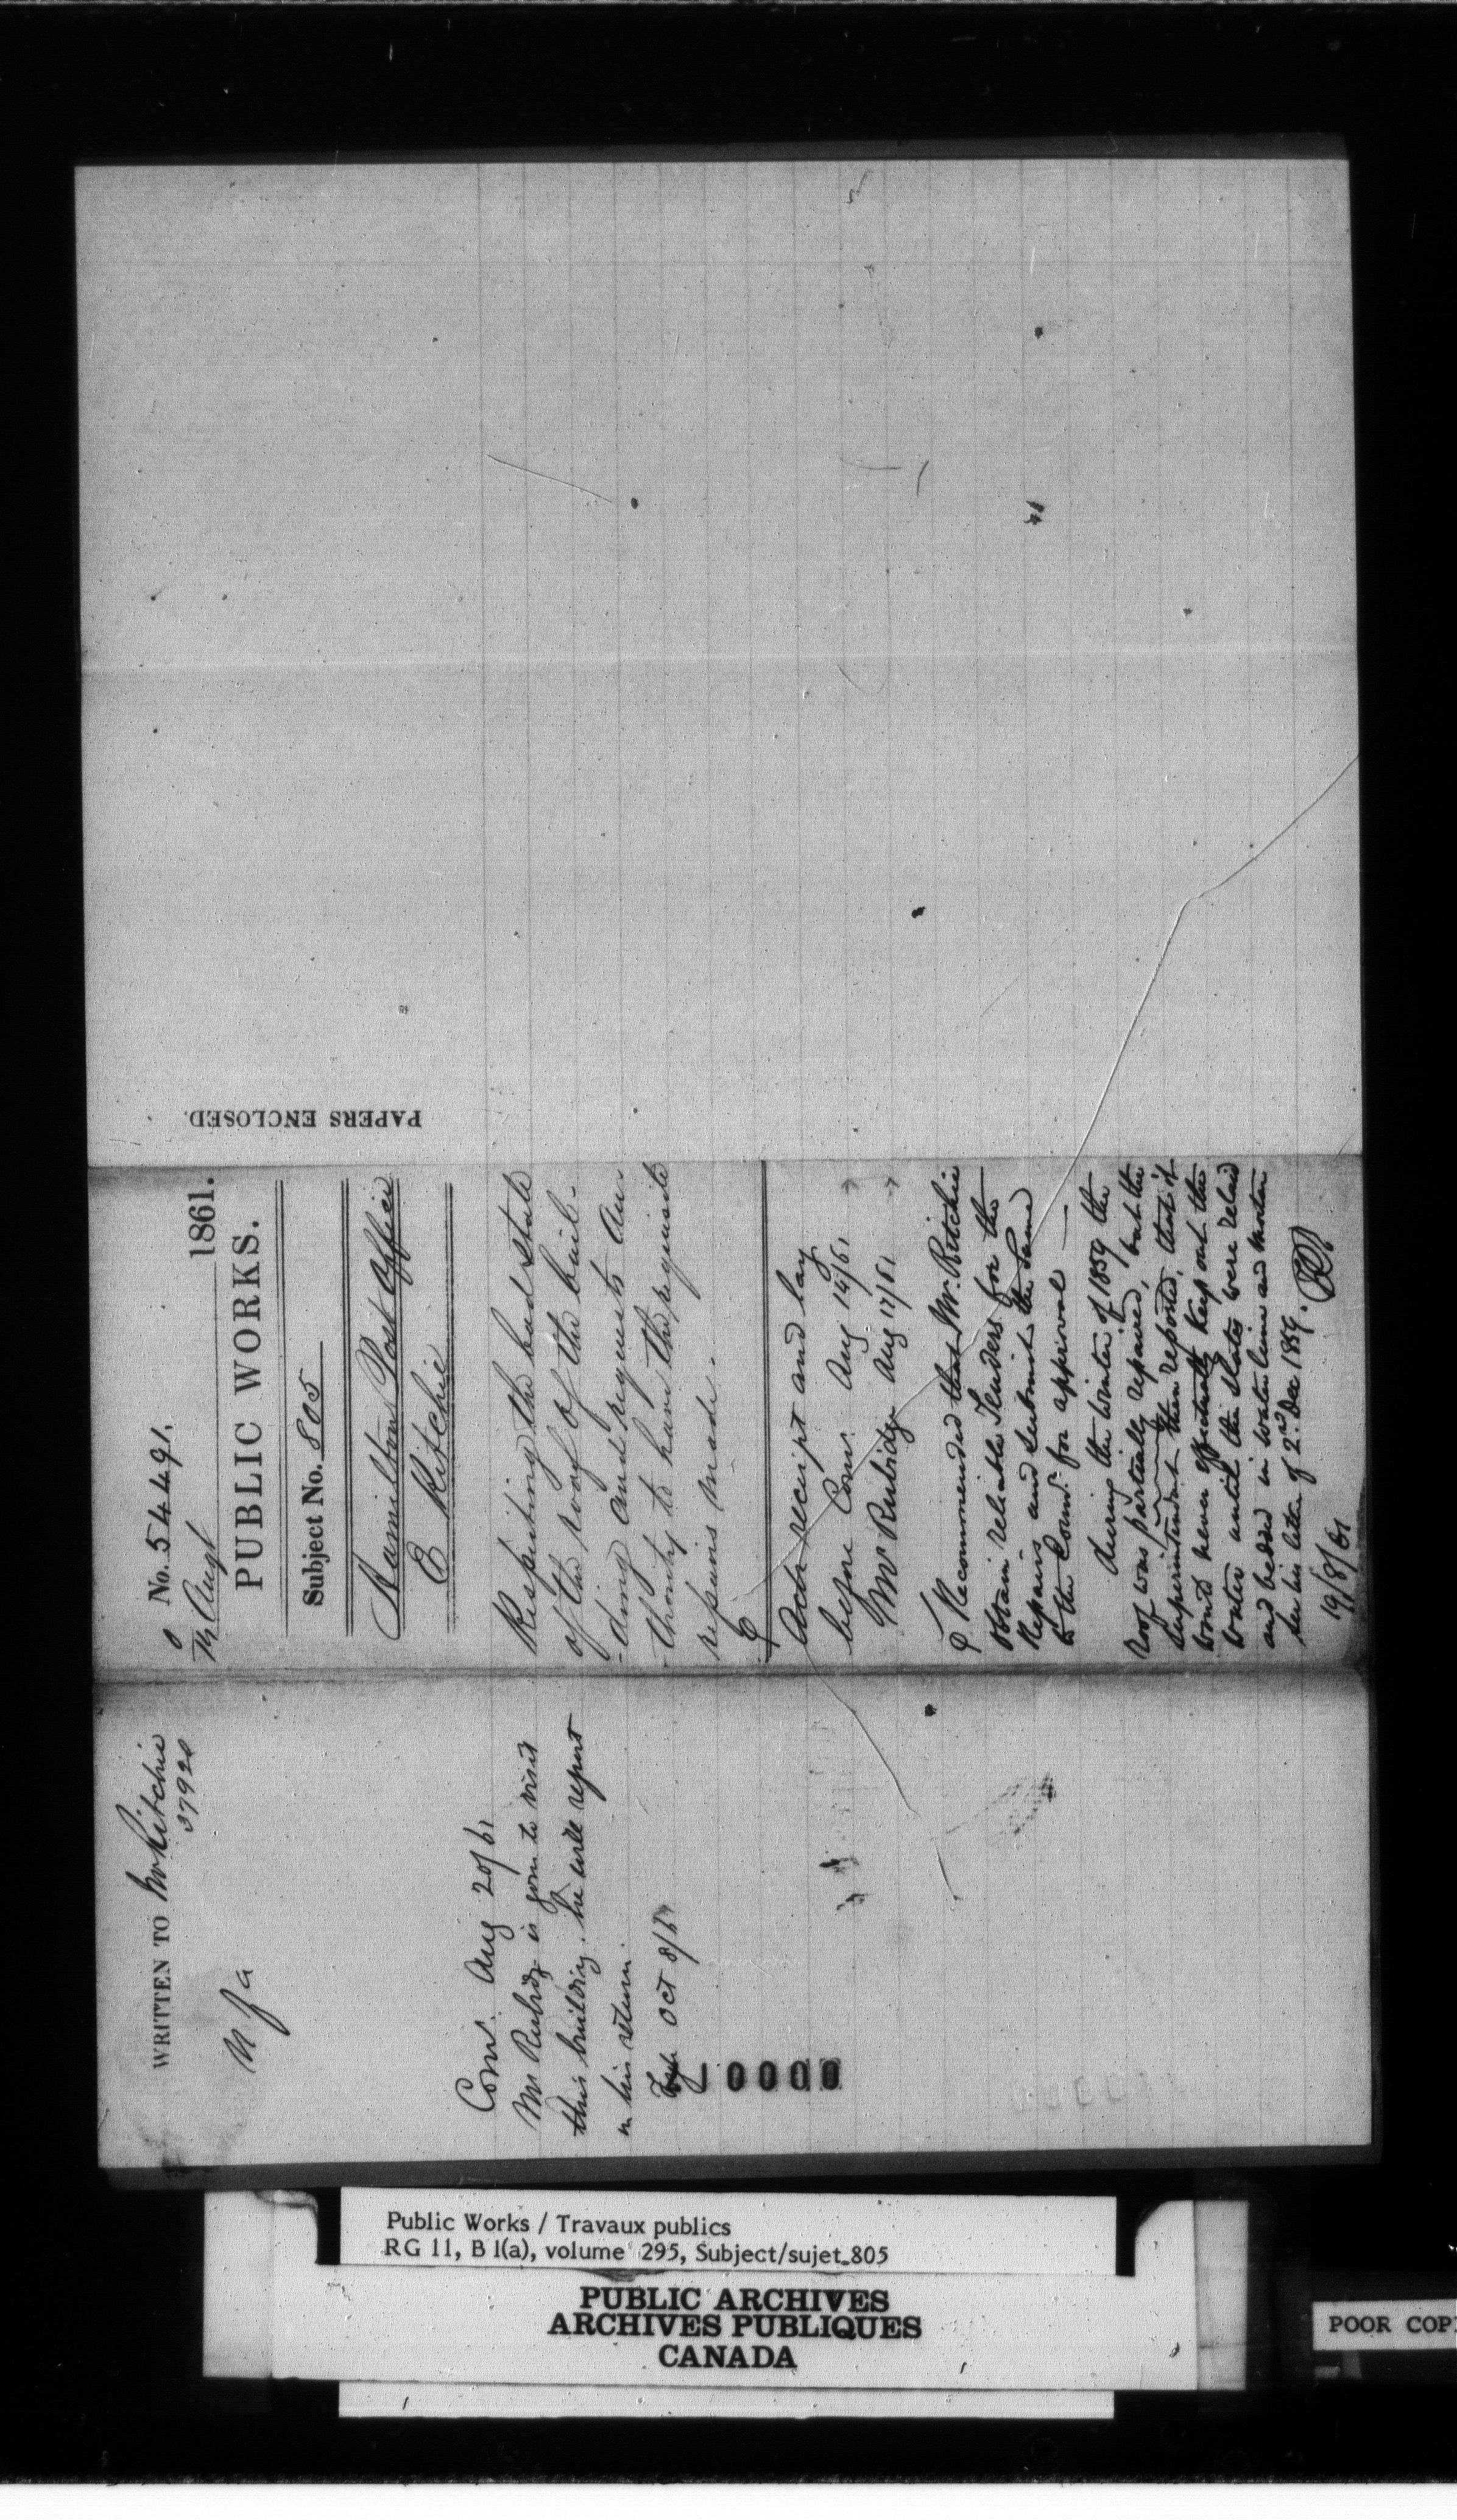 No. 54491.
Augt 1861.
PUBLIC WORKS.
Subject No. 805
Hamilton Post Office
E Ritchie
Respecting the bad state
of the roof of the buil-
-ding and requests au-
-thority to have the requisite
repairs made.
receipt and lay
before Comr. Aug 14/61
Mr Rubidge Aug 17/61
Recommended that Mr. Ritchie
obtain reliable Tenders for the
Repairs and submit the same
to the Comr. for approval —
During the winter of 1859 the
roof was partially repaired, but the
Superintendent then reported, that it
would never effectually keep out the
water until the slates were relaid
and bedded in water lime and mortar
see his letter of 2nd Dec 1859.
19/8/61
WRITTEN TO Mr Ritchie
37920
Comr. Aug 20/61
Mr Rubidge is gone to visit
this building. he will report
on his return.
Oct 8/61
10000
PAPERS ENCLOSED.
Public Works / Travaux publics
RG 11, B 1(a), volume 295, Subject/sujet 805
PUBLIC ARCHIVES
ARCHIVES PUBLIQUES
CANADA
POOR COP